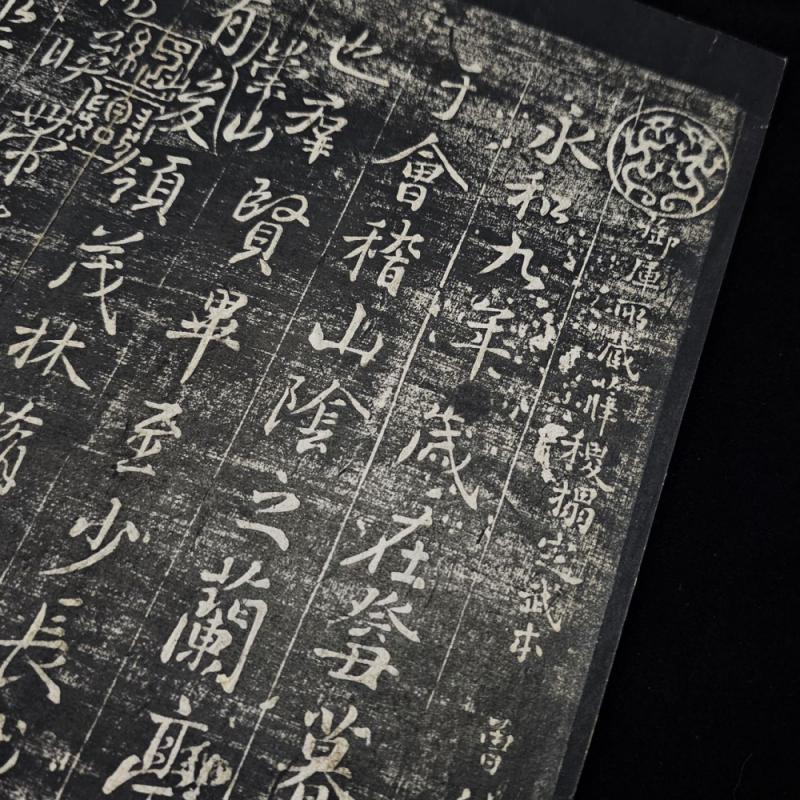 御庫所藏薛稷搨定武本
永和九年歲在癸丑暮
于會稽山陰之蘭亭
也羣賢畢至少長
崇山
有峻領茂林脩
湍暎帶